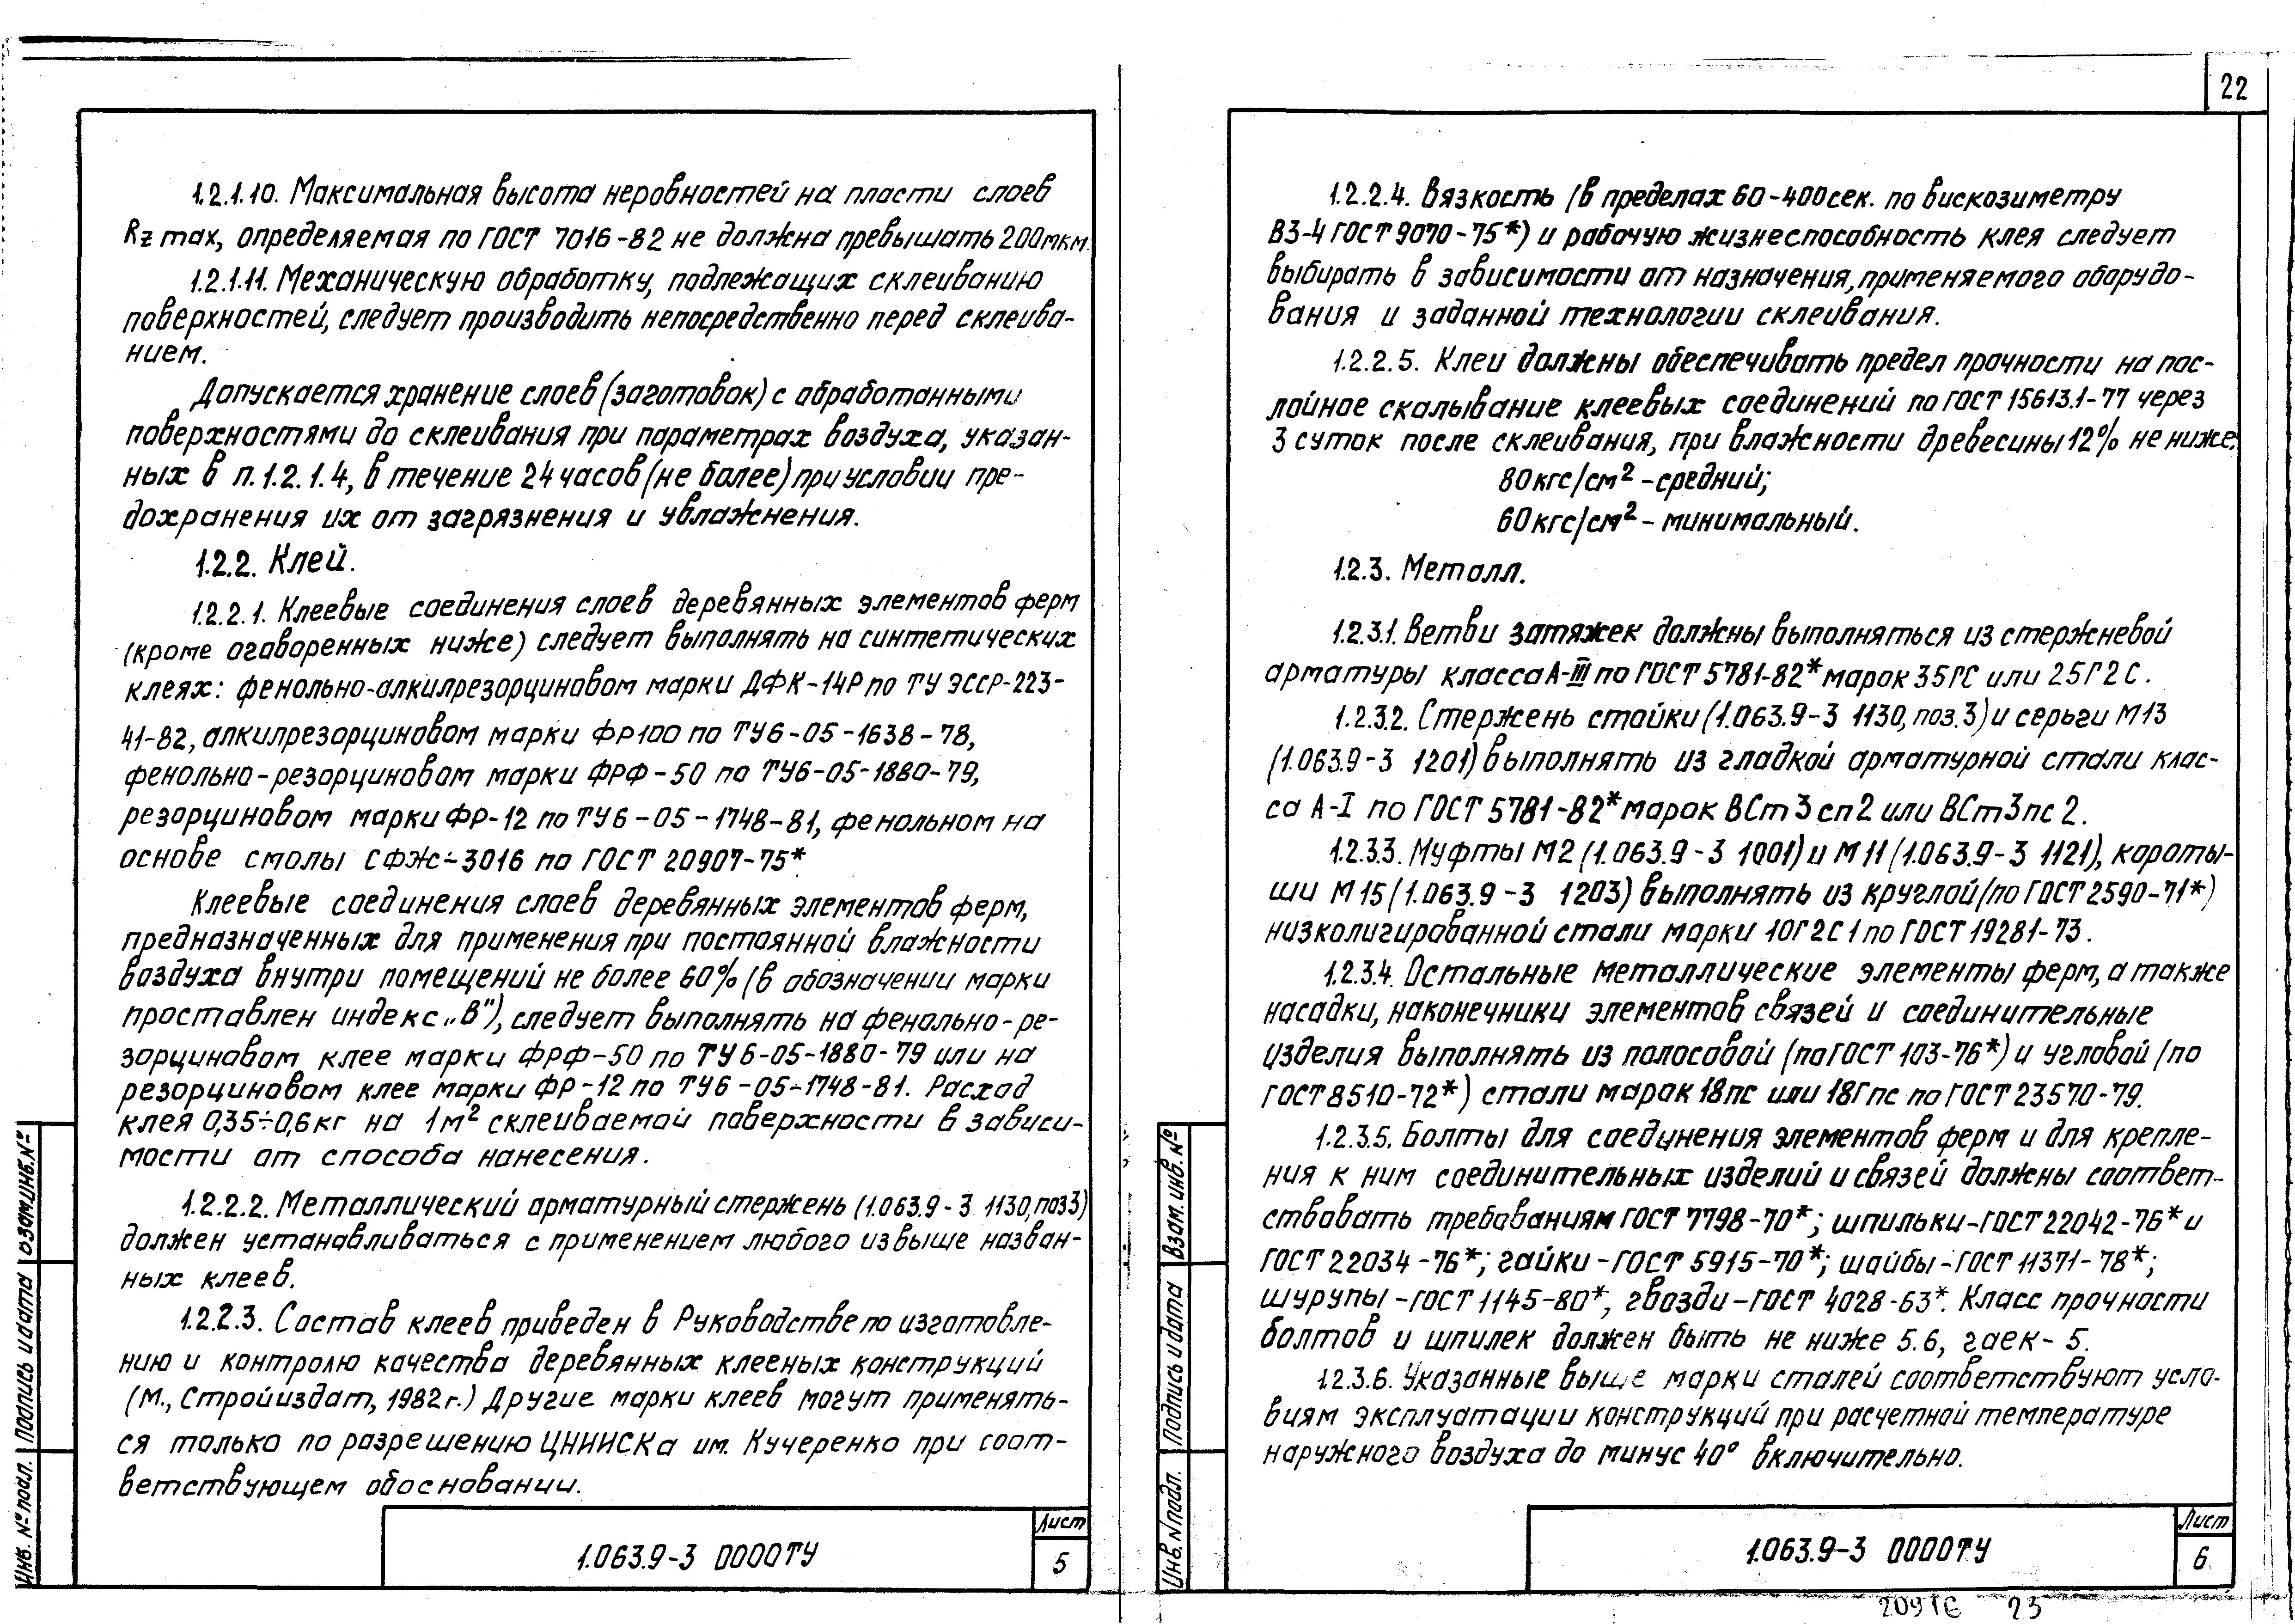 1.2.1.10. Максимальная высота неровностей на пласти слоев
Rz max, определяемая по ГОСТ 7016-82 не должна превышать 200мкм.
1.2.1.11. Механическую обработку, подлежащих склеиванию
поверхностей, следует производить непосредственно перед склеива-
нием.
Допускается хранение слоев (заготовок) с обработанными
поверхностями до склеивания при параметрах воздуха, указан-
ных в п. 1.2.1.4, в течение 24 часов (не более) при условии пре-
дохранения их от загрязнения и увлажнения.
1.2.2. Клей.
1.2.2.1. Клеевые соединения слоев деревянных элементов ферм
(кроме оговоренных ниже) следует выполнять на синтетических
клеях: фенольно-алкилрезорциновом марки ДФК-14Р по ТУ ЭССР-223-
41-82, алкилрезорциновом марки ФР100 по ТУ6-05-1638-78,
фенольно-резорциновом марки ФРФ-50 по ТУ6-05-1880-79,
резорциновом марки ФР-12 по ТУ6-05-1748-81, фенольном на
основе смолы СФЖ-3016 по ГОСТ 20907-75*.
Клеевые соединения слоев деревянных элементов ферм,
предназначенных для применения при постоянной влажности
воздуха внутри помещений не более 60% (в обозначении марки
проставлен индекс „В"), следует выполнять на фенольно-ре-
зорциновом клее марки ФРФ-50 по ТУ 6-05-1880-79 или на
резорциновом клее марки ФР-12 по ТУ6-05-1748-81. Расход
клея 0,35÷0,6кг на 1м² склеиваемой поверхности в зависи-
мости от способа нанесения.
1.2.2.2. Металлический арматурный стержень (1.063.9-3 1130, поз3)
должен устанавливаться с применением любого из выше назван-
ных клеев.
1.2.2.3. Состав клеев приведен в Руководстве по изготовле-
нию и контролю качества деревянных клееных конструкций
(М., Стройиздат, 1982г.) Другие марки клеев могут применять-
ся только по разрешению ЦНИИСКа им. Кучеренко при соот-
ветствующем обосновании.
Инв. № подл. Подпись и дата Взам.инв.№
1.063.9-3 0000ТУ
Лист
5
22
1.2.2.4. Вязкость (в пределах 60-400сек. по вискозиметру
ВЗ-4 ГОСТ 9070-75*) и рабочую жизнеспособность клея следует
выбирать в зависимости от назначения, применяемого оборудо-
вания и заданной технологии склеивания.
1.2.2.5. Клеи должны обеспечивать предел прочности на пос-
лойное скалывание клеевых соединений по ГОСТ 15613.1-77 через
3 суток после склеивания, при влажности древесины 12% не ниже:
80кгс/см² - средний;
60кгс/см² - минимальный.
1.2.3. Металл.
1.2.3.1. Ветви затяжек должны выполняться из стержневой
арматуры класса А-III по ГОСТ 5781-82* марок 35ГС или 25Г2С.
1.2.3.2. Стержень стойки (1.063.9-3 1130, поз.3) и серьги М13
(1.063.9-3 1201) выполнять из гладкой арматурной стали клас-
са А-I по ГОСТ 5781-82* марок ВСт3сп2 или ВСт3пс2.
1.2.3.3. Муфты М2 (1.063.9-3 1001) и М11 (1.063.9-3 1121), короты-
ши М15 (1.063.9-3 1203) выполнять из круглой (по ГОСТ 2590-71*)
низколигированной стали марки 10Г2С1 по ГОСТ 19281-73.
1.2.3.4. Остальные металлические элементы ферм, а также
насадки, наконечники элементов связей и соединительные
изделия выполнять из полосовой (по ГОСТ 103-76*) и угловой (по
ГОСТ 8510-72*) стали марок 18пс или 18Гпс по ГОСТ 23570-79.
1.2.3.5. Болты для соединения элементов ферм и для крепле-
ния к ним соединительных изделий и связей должны соответ-
ствовать требованиям ГОСТ 7798-70*; шпильки-ГОСТ 22042-76* и
ГОСТ 22034-76*; гайки-ГОСТ 5915-70*; шайбы-ГОСТ 11371-78*;
шурупы-ГОСТ 1145-80*, гвозди-ГОСТ 4028-63*. Класс прочности
болтов и шпилек должен быть не ниже 5.6, гаек-5.
1.2.3.6. Указанные выше марки сталей соответствуют усло-
виям эксплуатации конструкций при расчетной температуре
наружного воздуха до минус 40° включительно.
Инв. № подл. Подпись и дата Взам. инв. №
1.063.9-3 0000ТУ
Лист
6
20916 23